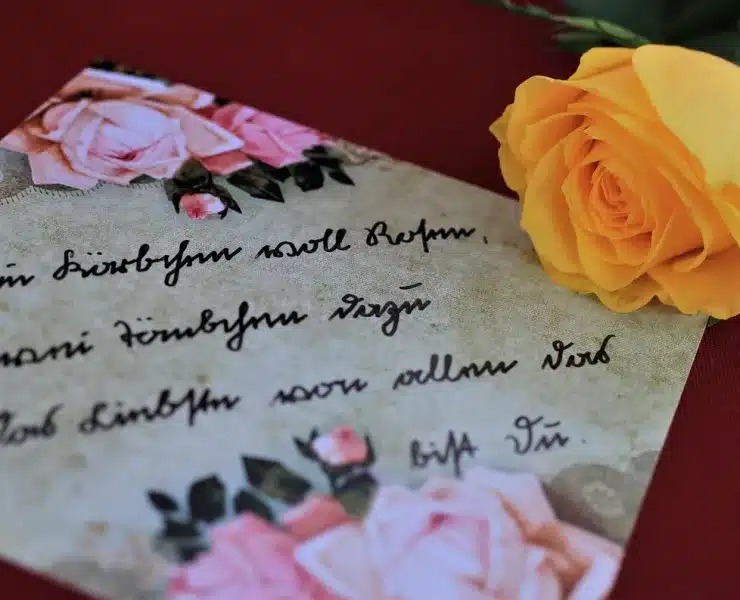 in Körbchen voll Rosen,
wei Täubchen dazu
das Liebste von allen das
bist Du.